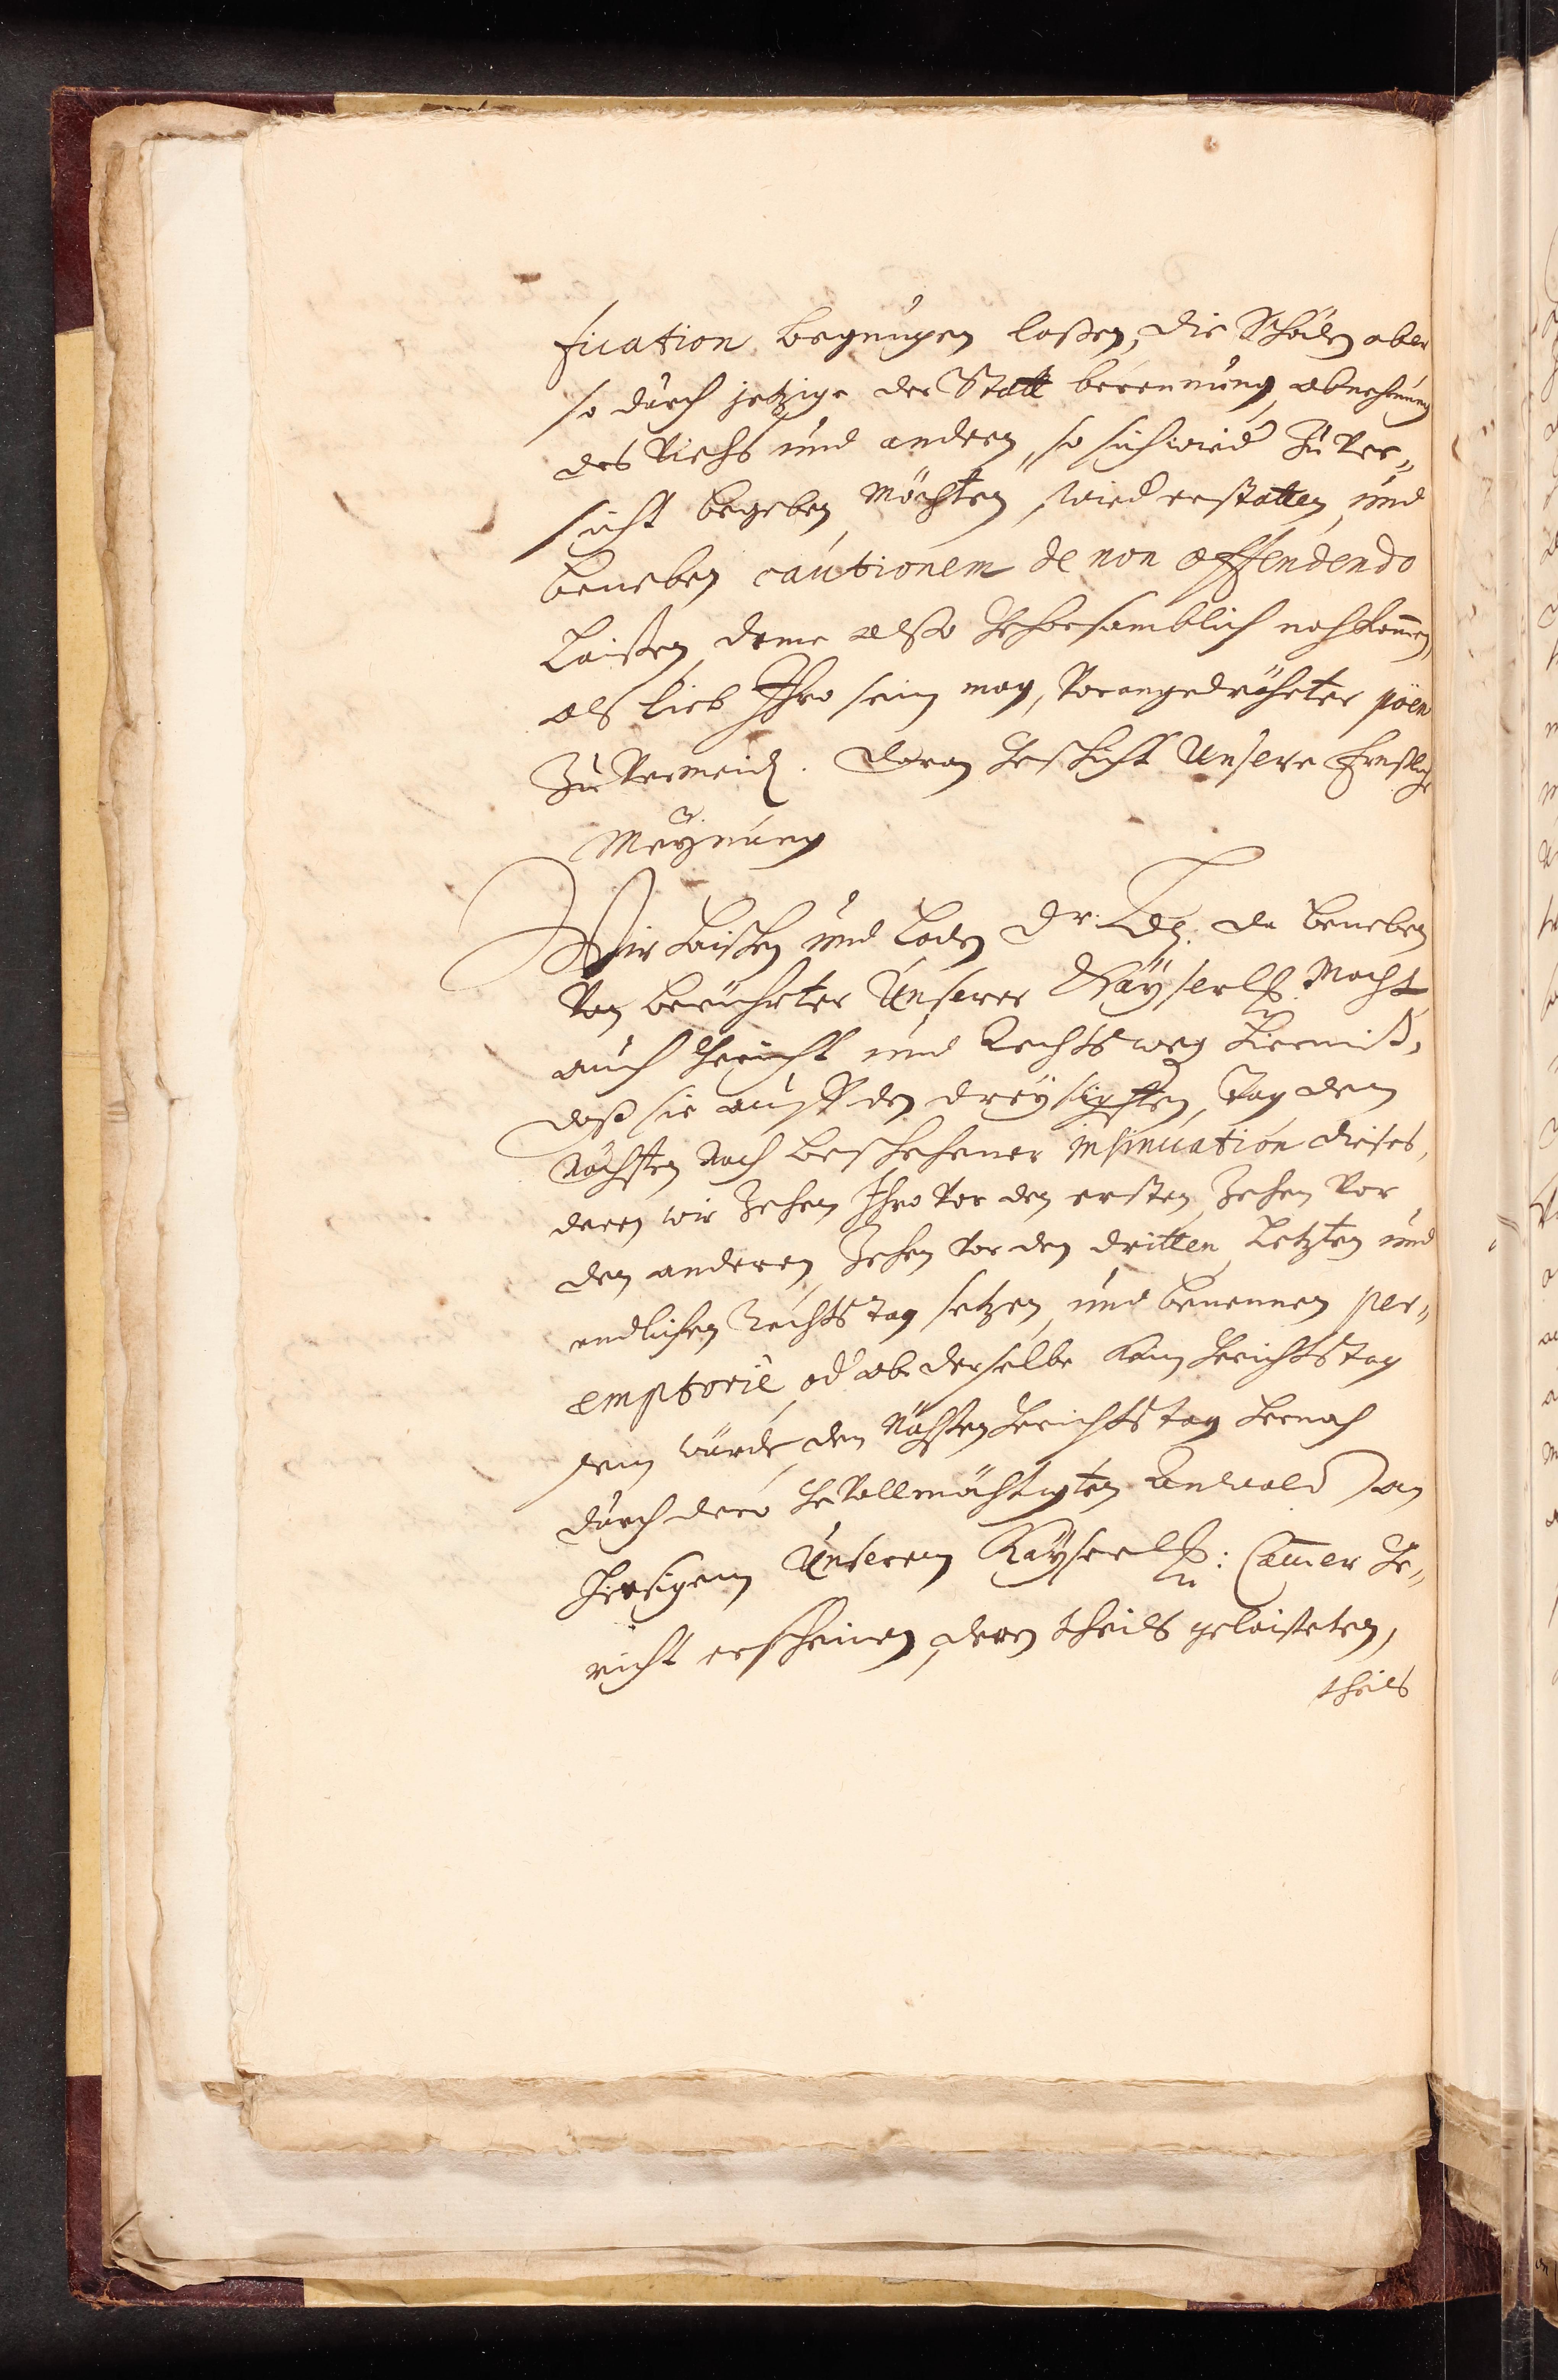 fication begnügen laßen, die Schäden aber
so durch jetzige der Statt berennung, abnehmung
des Viehs und andern, so sich wied' Zu ver„
sicht begeben möchten, wied' erstatten, und
beneben cautionem de non offendendo
Laisten, deme also Gehorsamblich nachkom̄en,
als lieb Ihro sein mag, Vorangedröheter pöen
Zu Vermeid. Daran Geschicht Unsere Ernstliche
Meÿnung
Wir heischen und laden Dr. Ldn. da beneben
Von berührter Unserer Kaÿserl. Macht
auch Gericht und Rechts weg hiermit,
daß sie auff den dreÿsigsten Tag dem
nächsten nach beschehener insinuation dieses,
deren wir Zehen Ihro Vor den ersten, Zehen Vor
den anderen, Zehen Vor den dritten, Letzten und
endlichen Rechts tag setzen, und benennen per„
emptorie, od' ob derselbe kein Gerichts tag
sein würde, den nächsten Gerichts tag hernach
durch dero GeVollmächtigten Anwald an
hiesigem Unserem Kaÿserl: Cam̄er Ge„
richt erscheinen, deren theils gelaisteten,
theils